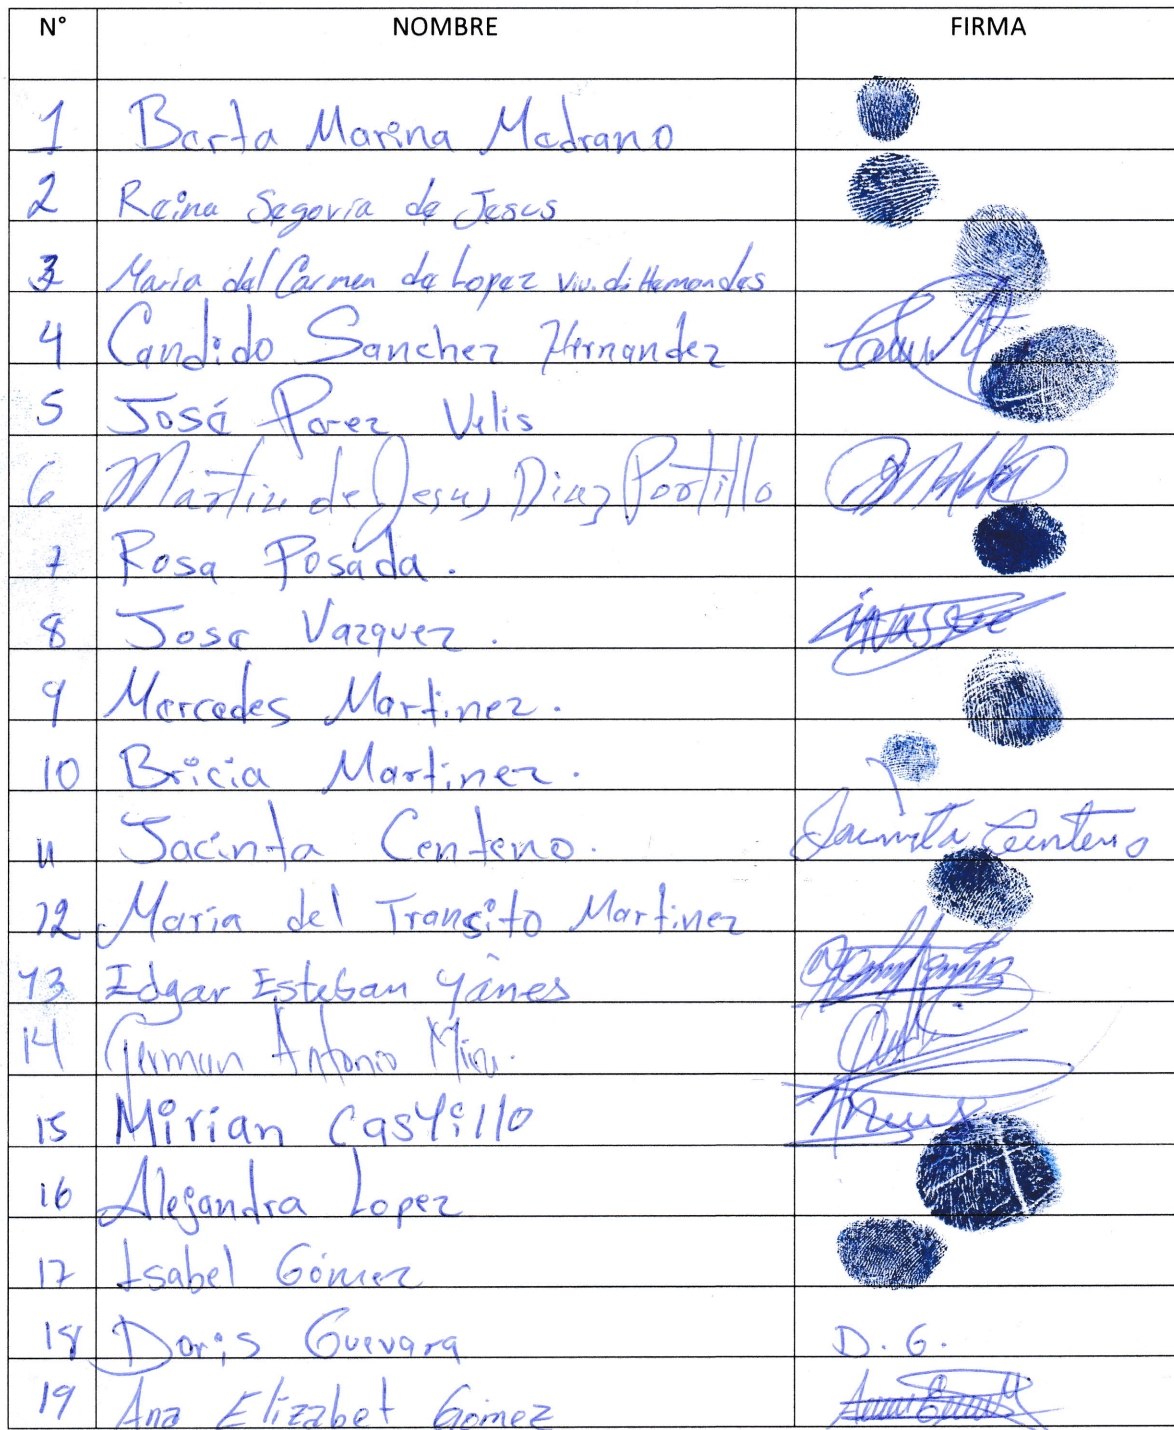 N° NOMBRE FIRMA
1 Berta Marina Medrano
2 Reina Segovia de Jesus
3 Maria del Carmen de Lopez Viu. di Hernandes
4 Candido Sanchez Hernandez
5 José Perez Velis
6 Martin de Jesus Diaz Portillo
7 Rosa Posada.
8 Jose Vazquez.
9 Mercedes Martinez.
10 Bricia Martinez.
11 Jacinta Centeno. Jacinta Centeno
12 María del Transito Martinez
13 Edgar Esteban Yánes
14 German Antonio
15 Mirian Castillo
16 Alejandra Lopez
17 Isabel Gómez
18 Doris Guevara D. G.
19 Ana Elizabet Gómez